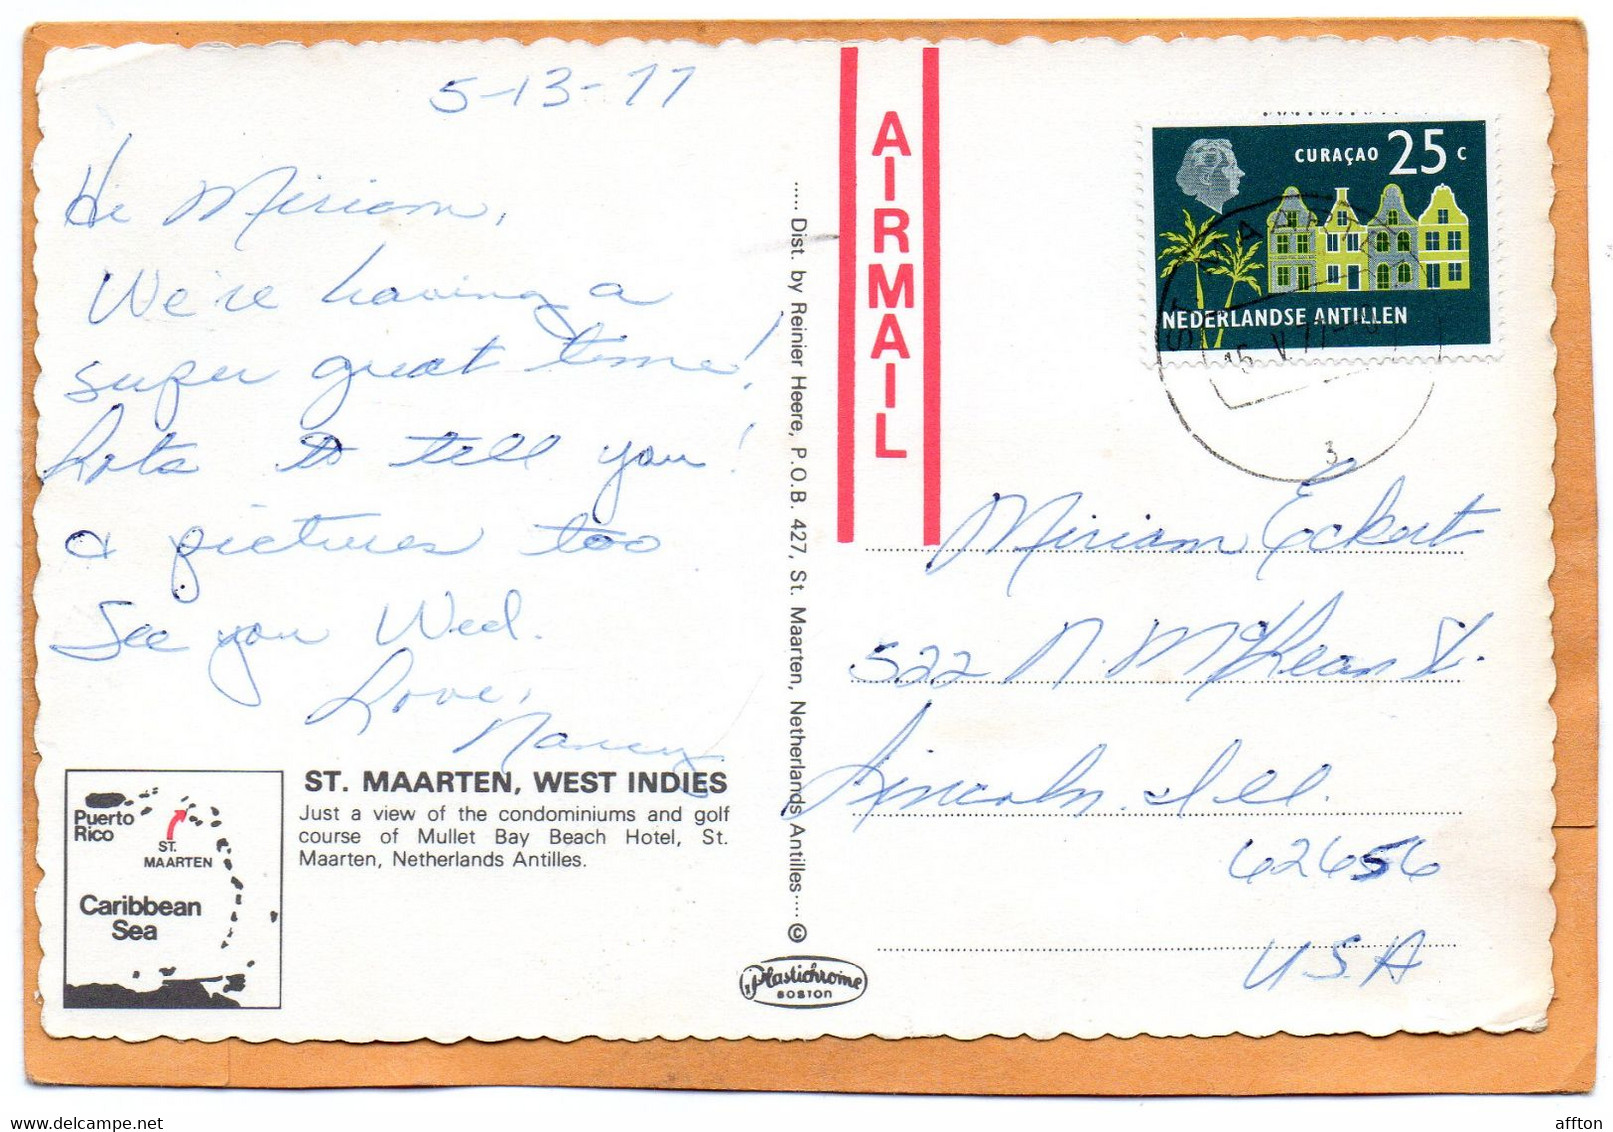 5-13-77
Hi Miriam,
We're having a
super great time!
Lots to tell you!
& pictures too
See you Wed.
Love,
Nancy
ST. MAARTEN, WEST INDIES
Just a view of the condominiums and golf
course of Mullet Bay Beach Hotel, St.
Maarten, Netherlands Antilles.
Puerto
Rico
ST.
MAARTEN
Caribbean
Sea
..... Dist. by Reinier Heere, P.O.B. 427, St. Maarten, Netherlands Antilles.... ©
Plastichrome
BOSTON
AIRMAIL
CURAÇAO 25 C
NEDERLANDSE ANTILLEN
3
Miriam Eckert
522 N. McKlean St.
Lincoln, Ill.
62656
USA
affton